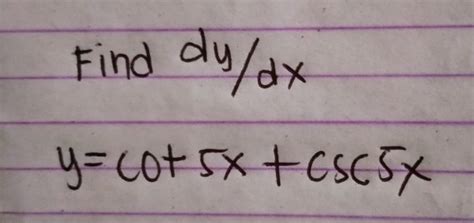 Find dy/dx
y=cot 5x + csc5x